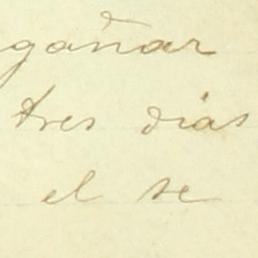 gañar
tres dias
el se